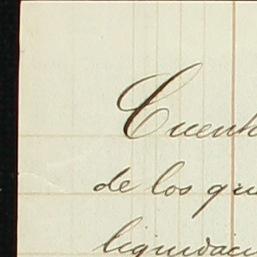 Cuent
de los qu
liquidaci